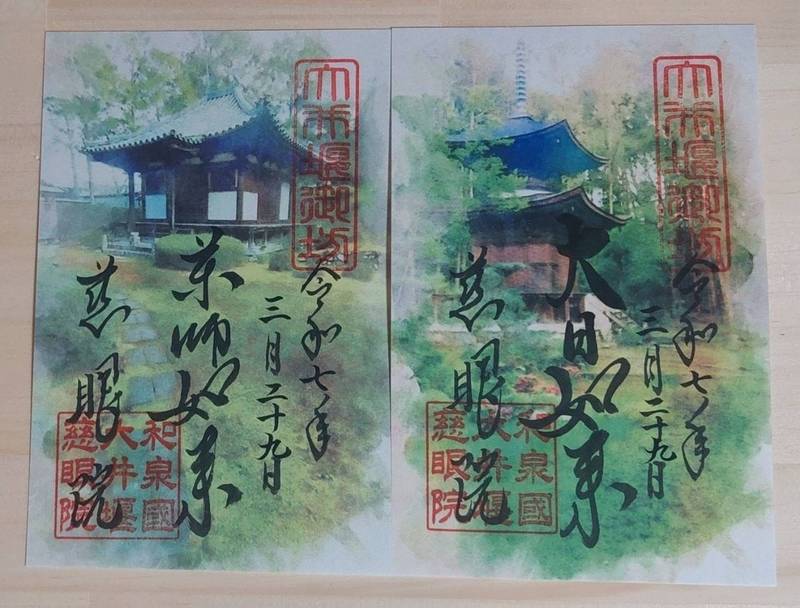 大井堰御坊
令和七年
三月二十九日
薬師如来
慈眼院
和泉國
大井堰
慈眼院
大井堰御坊
令和七年
三月二十九日
大日如来
慈眼院
和泉國
大井堰
慈眼院